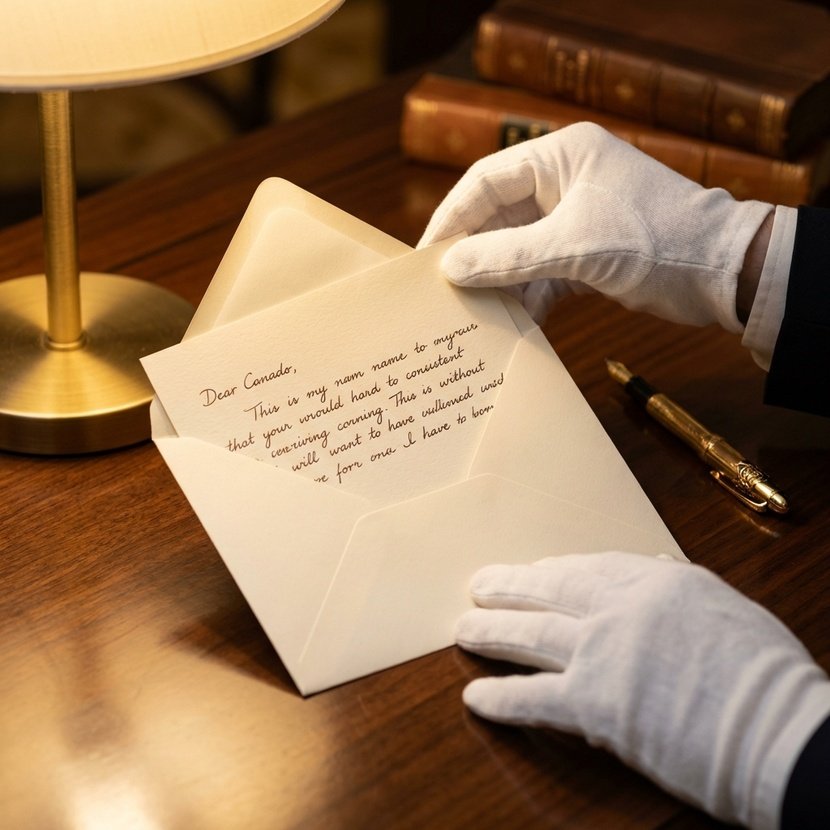 Dear Canado,
This is my nam name to
that your would hard to consistent
cerriving corning. This is without
will want to have
for one I have to